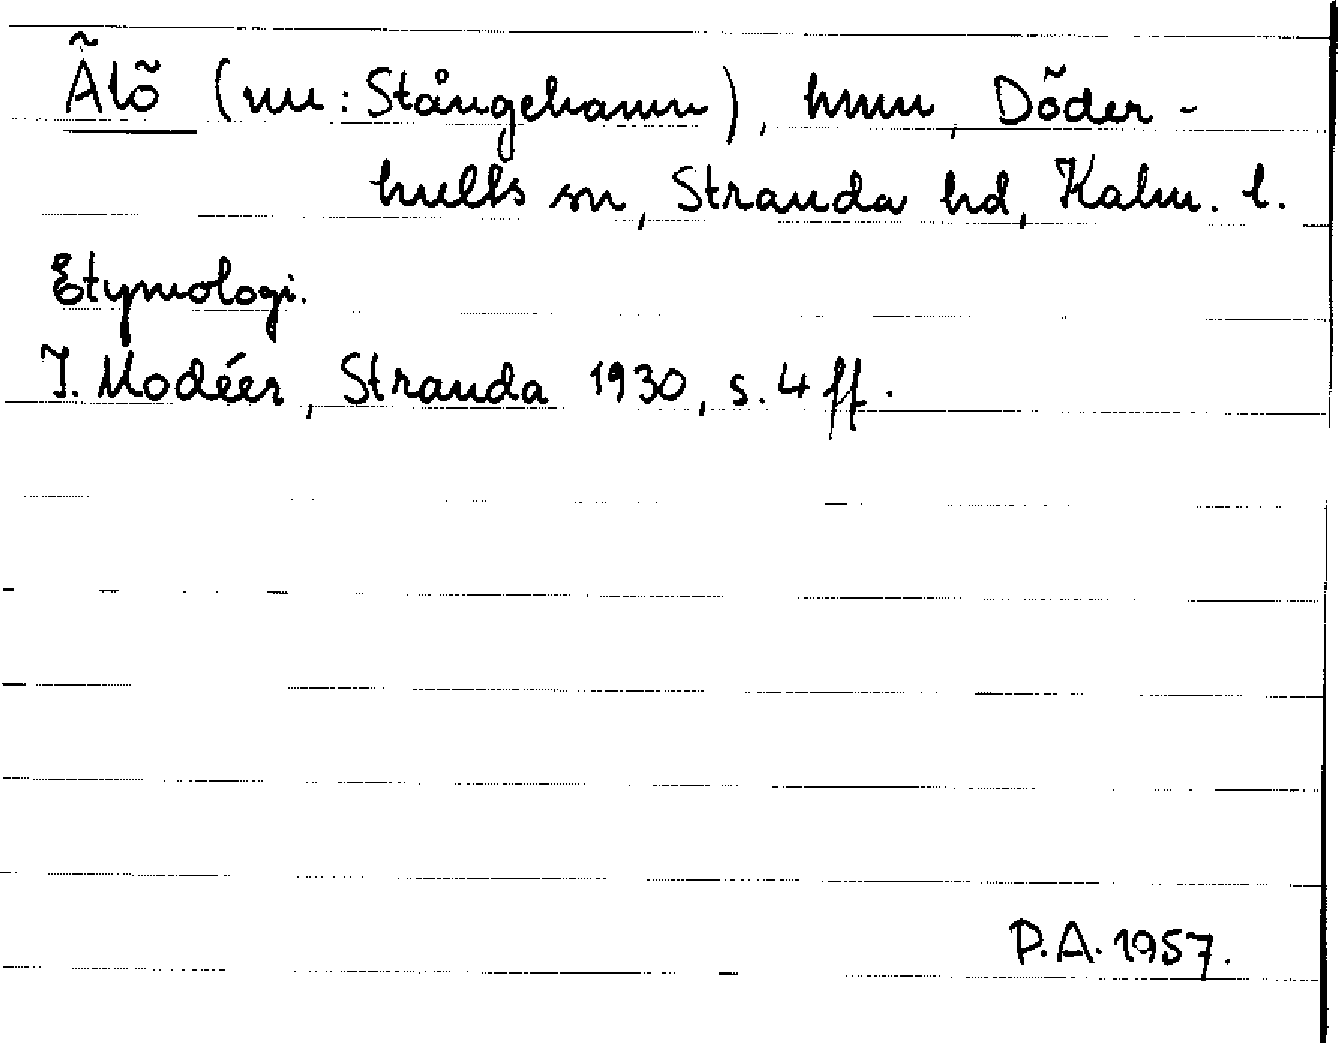 Ätö (nu: Stångehamn), hmn, Döder-
hults sn, Stranda hd, Kalm. l.
Etymologi.
I. Modéer, Stranda 1930, s. 4 ff.
P.A. 1957.